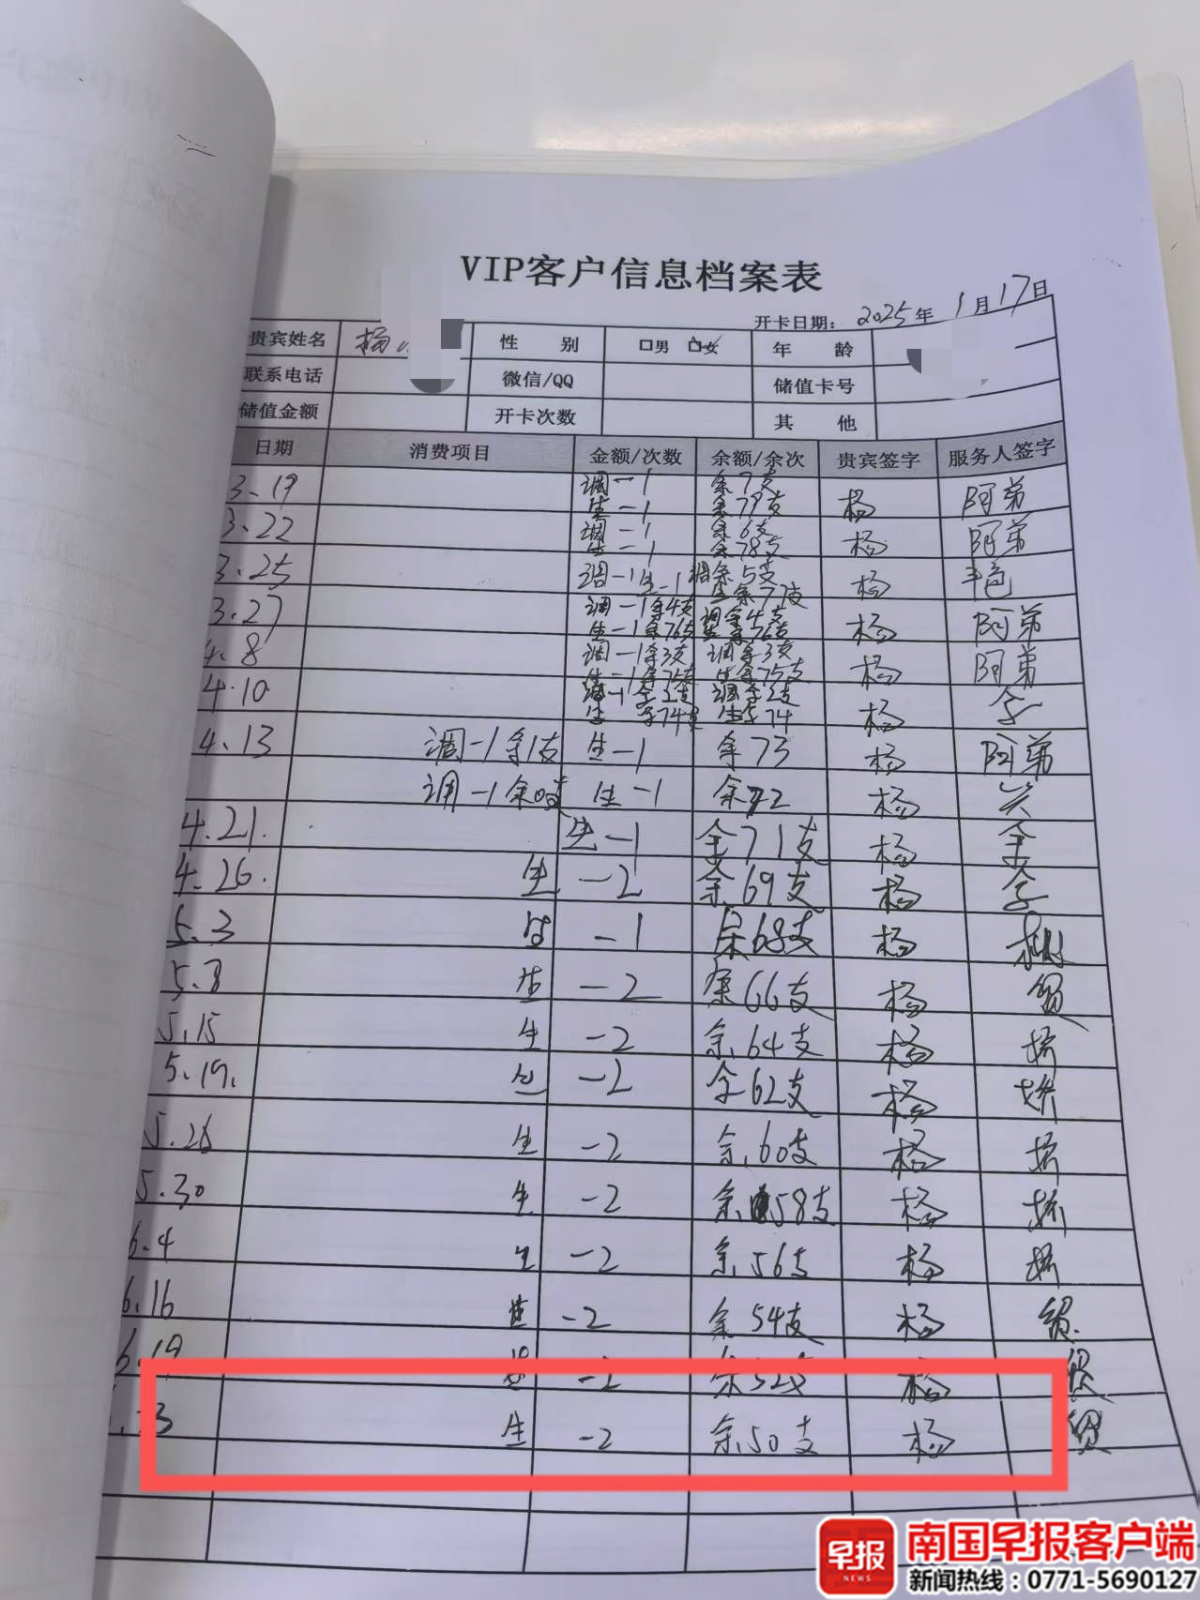 VIP客户信息档案表
开卡日期：2025年1月17日
贵宾姓名 杨 性别 口男 口女 年龄
联系电话 微信/QQ 储值卡号
储值金额 开卡次数 其他
日期 消费项目 金额/次数 余额/余次 贵宾签字 服务人签字
3.19 调-1 余7支
生-1 余79支 杨 阿弟
3.22 调-1 余6支
生-1 余78支 杨 阿弟
3.25 调-1生-1 调余5支
生余77支 杨
3.27 调-1余4支 调余4支
生-1余76支 生余76支 杨 阿弟
4.8 调-1余3支 调余3支
生-1余75支 生余75支 杨 阿弟
4.10 调-1余2支 调余2支
生 余74支 生余74 杨
4.13 调-1余1支 生-1 余73 杨 阿弟
调-1余0支 生-1 余72 杨
4.21. 生-1 余71支 杨
4.26. 生 -2 余69支 杨
5.3 -1 余68支 杨
5.8 生 -2 余66支 杨
5.15 生 -2 余64支 杨
5.19. 生 -2 余62支 杨
5.26 生 -2 余60支 杨
5.30 生 -2 余58支 杨
6.4 生 -2 余56支 杨
6.16 生 -2 余54支 杨
6.19 -2 余52支 杨
生 -2 余50支 杨
早报 NEWS
南国早报客户端
新闻热线：0771-5690127